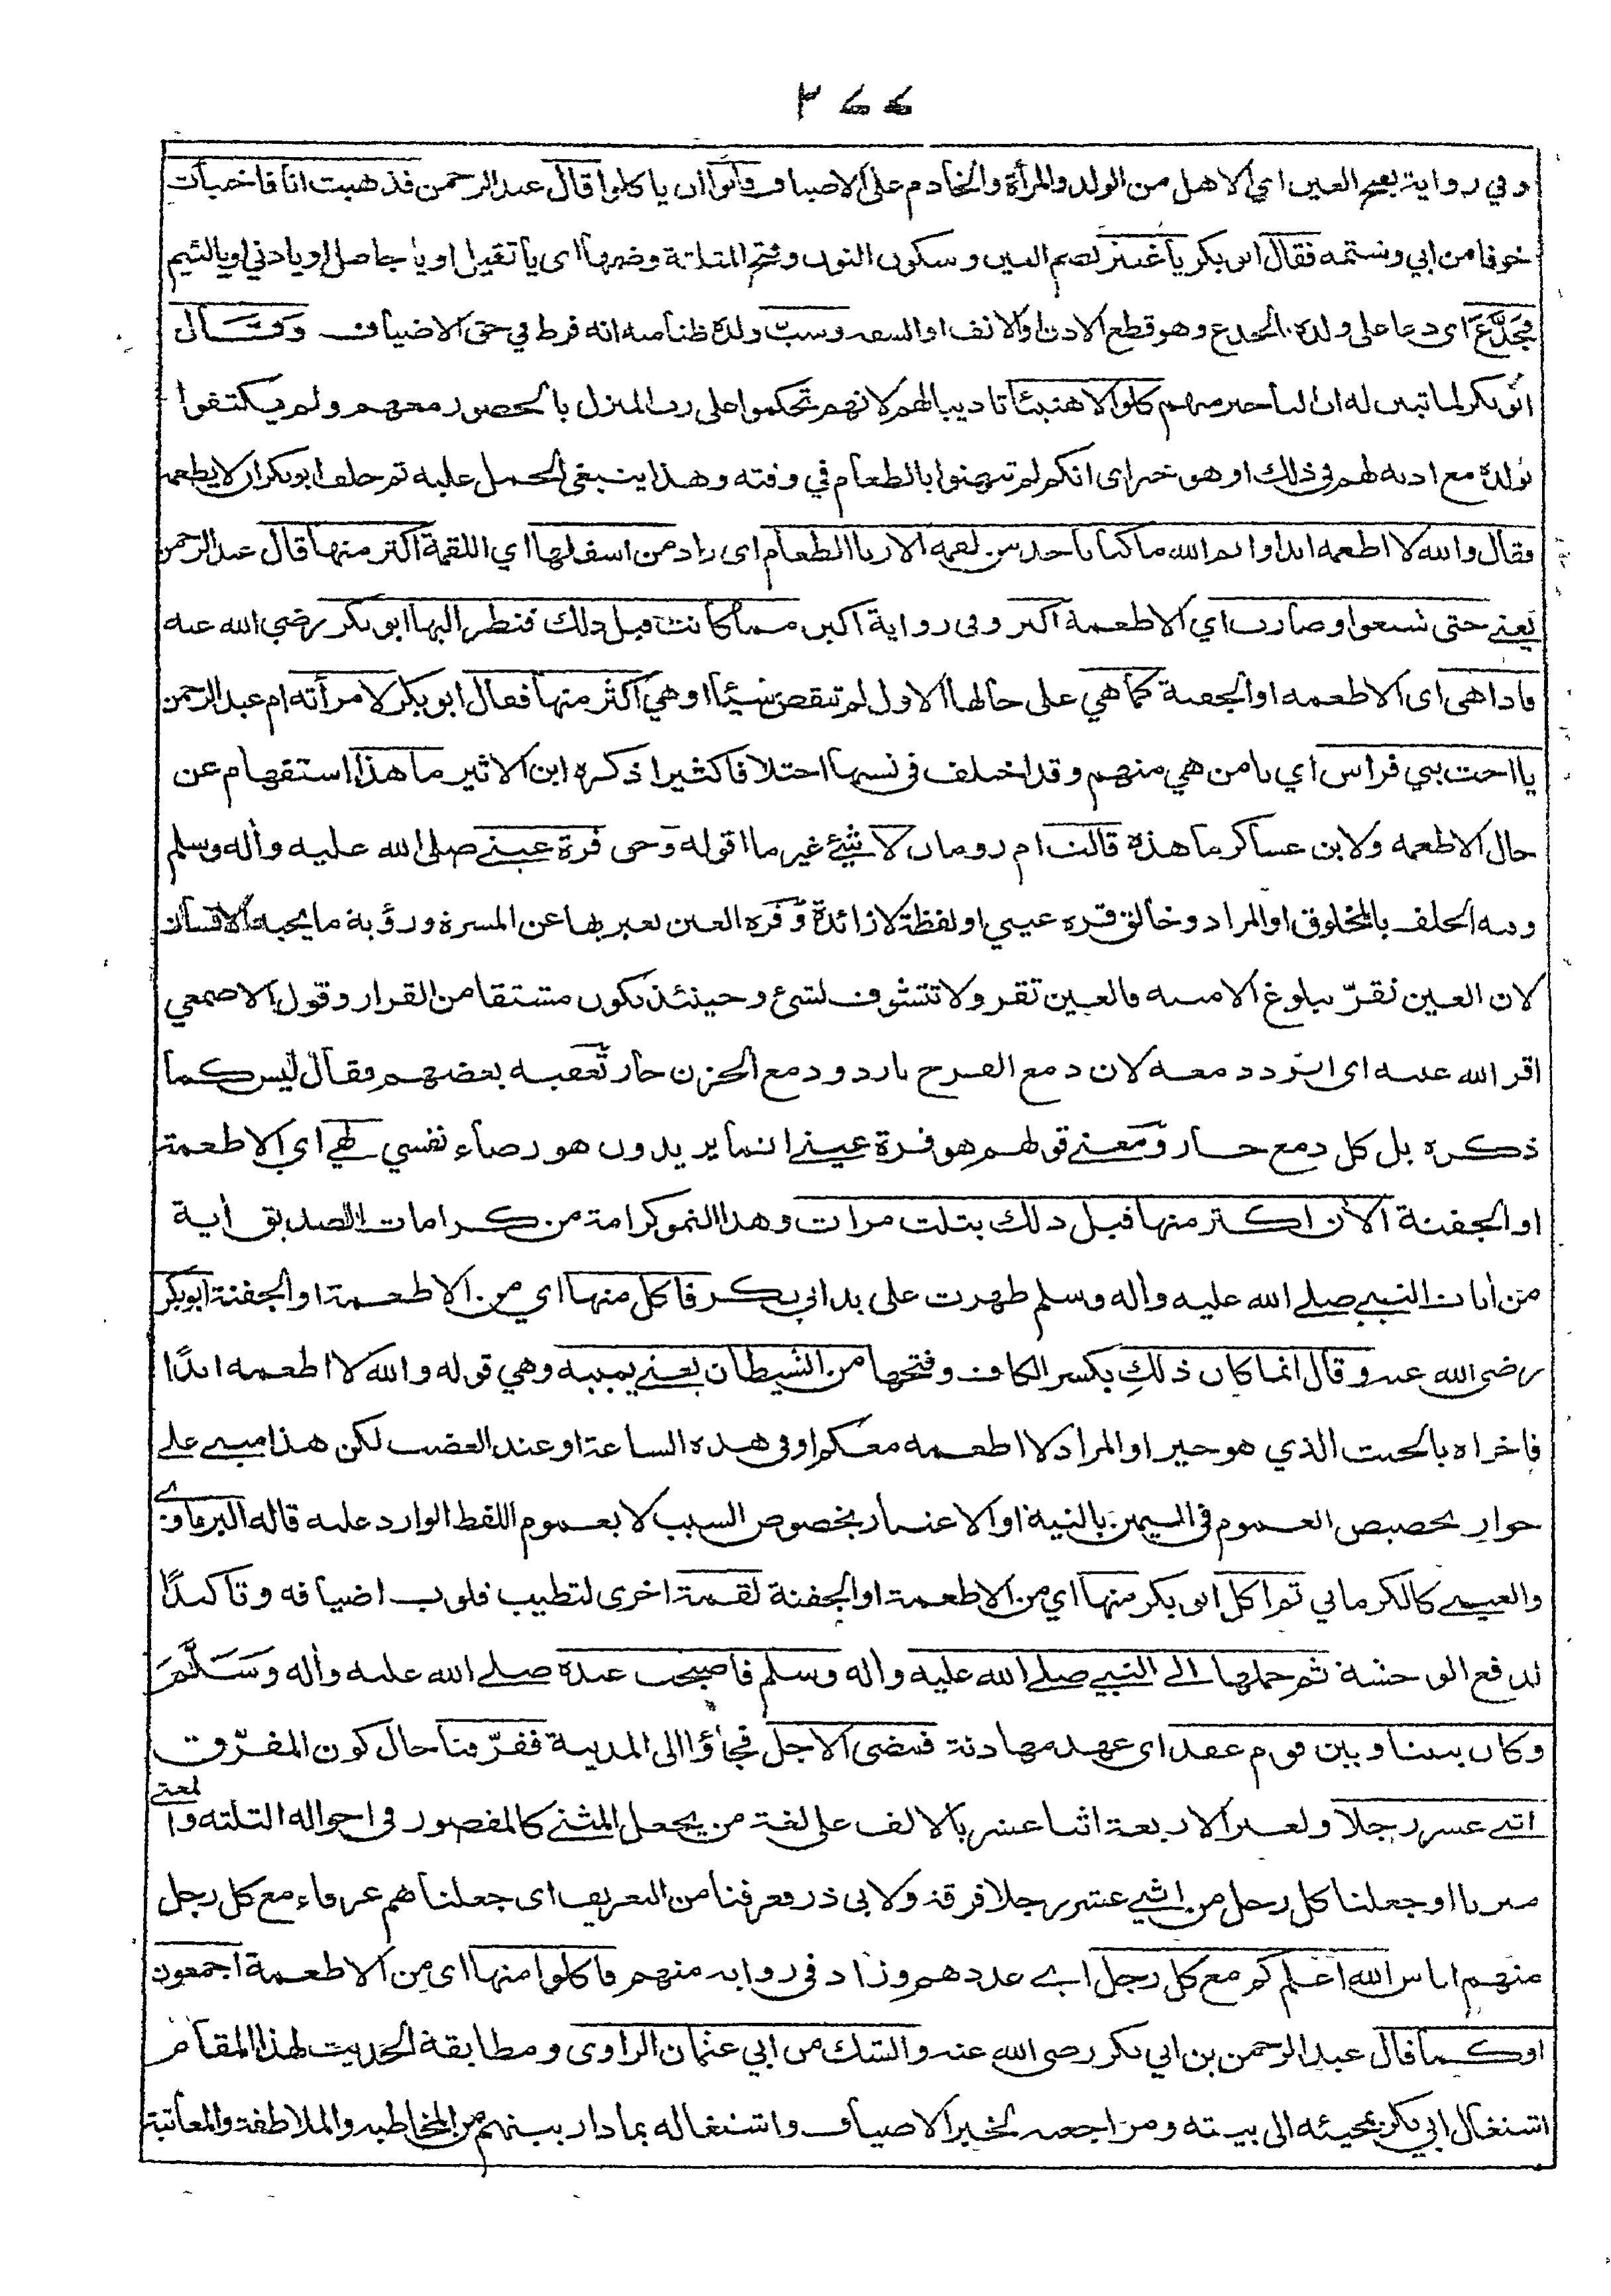 ٣٤٤
وفي رواية بفتح العين اي الاهل من الولد والمرأة والخادم على الاضياف وأبوا ان ياكلوا قال عبد الرحمن فذهبت انا فاختبأت
خوفا من ابي وشتمه فقال ابو بكر يا غنثر بضم الغين وسكون النون وفتح المثلثة وضمها اى يا ثقيل او يا جاهل او يا دني او يا لئيم
فجدّع اى دعا على ولده بالجدع وهو قطع الاذن او الانف او الشفه وسبّ ولده ظنا منه انه فرط في حق الاضياف وقال
ابو بكر لما تبين له ان التأخر منهم كلوا لا هنيئا تاديبا لهم لانهم تحكموا على رب المنزل بالحضور معهم ولم يكتفوا
بولده مع اذنه لهم في ذلك او هو خبر اى انكم لم تهنوا بالطعام في وقته وهذا ينبغي الحمل عليه ثم حلف ابو بكر ان لا يطعمه
فقال والله لا اطعمه ابدا وايم الله ما كنا ناخذ من لقمه الا ربا الطعام اى زاد من اسفلها اي اللقمة اكثر منها قال عبد الرحمن
يعنے حتى شبعوا وصارت اي الاطعمة اكثر وفى رواية اكبر مما كانت قبل ذلك فنظر اليها ابو بكر رضي الله عنه
فاذا هى اى الاطعمه او الجفنة كما هي على حالها الاول لم تنقص شيئا او هي اكثر منها فقال ابو بكر لامرأته ام عبد الرحمن
يا اخت بني فراس اي يا من هي منهم وقد اختلف في نسبها اختلافا كثيرا ذكره ابن الاثير ما هذا استفهام عن
حال الاطعمه ولابن عساكر ما هذه قالت ام رومان لا شيئ غير ما اقوله وحى قرة عينے صلى الله عليه وأله وسلم
وفيه الحلف بالمخلوق او المراد وخالق قره عيني او لفظة لا زائدة وقره العين يعبر بها عن المسرة ورؤية ما يحبه الانسان
لان العين تقرّ ببلوغ الامنيه فالعين تقر ولا تتشوف لشئ وحينئذ يكون مشتقا من القرار وقول الاصمعي
اقر الله عينه اى ابرد دمعه لان دمع الفرح بارد ودمع الحزن حار تعقبه بعضهم فقال ليس كما
ذكره بل كل دمع حار ومعنے قولهم هو قرة عينے انما يريدون هو رضاء نفسي لهي اي الاطعمة
او الجفنة الأن اكثر منها قبل ذلك بثلث مرات وهذا النمو كرامة من كرامات الصديق أية
من أيات النبي صلے الله عليه وأله وسلم ظهرت على يد ابي بكر فاكل منها اي من الاطعمة او الجفنة ابو بكر
رضى الله عنه وقال انما كان ذلكِ بكسر الكاف وفتحها من الشيطان يعنے يمينه وهي قوله والله لا اطعمه ابدًا
فاخزاه بالحنث الذي هو خير او المراد لا اطعمه معكم او في هذه الساعة او عند الغضب لكن هذا مبنے علے
جواز تخصيص العموم في اليمين بالنية او الاعتبار بخصوص السبب لا بعموم اللفظ الوارد عليه قاله البرماوے
والعينے كالكرماني ثم اكل ابو بكر منها اي من الاطعمة او الجفنة لقمة اخرى لتطييب قلوب اضيافه وتاكيدًا
لدفع الوحشة ثم حملها الى النبي صلے الله عليه وأله وسلم فاصبحت عنده صلے الله عليه وأله وسلم
وكان بيننا وبين قوم عقد اى عهد مهادنة فمضى الاجل فجاؤا الى المدينة ففرّقنا حال كون المفرّق
اثنے عشر رجلا ولغير الاربعة اثنا عشر بالالف على لغة من يجعل المثنى كالمقصور في احواله الثلثه والمعنے
ميزنا او جعلنا كل رجل من اثنے عشر رجلا فرقة ولابى ذر فعرفنا من التعريف اى جعلناهم عرفاء مع كل رجل
منهم اناس الله اعلم كم مع كل رجل اے عددهم وزاد في روايه منهم فاكلوا منها اى من الاطعمة اجمعون
او كما قال عبد الرحمن بن ابي بكر رضى الله عنه والشك من ابي عثمان الراوى ومطابقة الحديث لهذا المقام
اشتغال ابي بكر بمجيئه الى بيته ومراجعته لخبر الاضياف واشتغاله بما دار بينهم من المخاطبه والملاطفة والمعاتبة